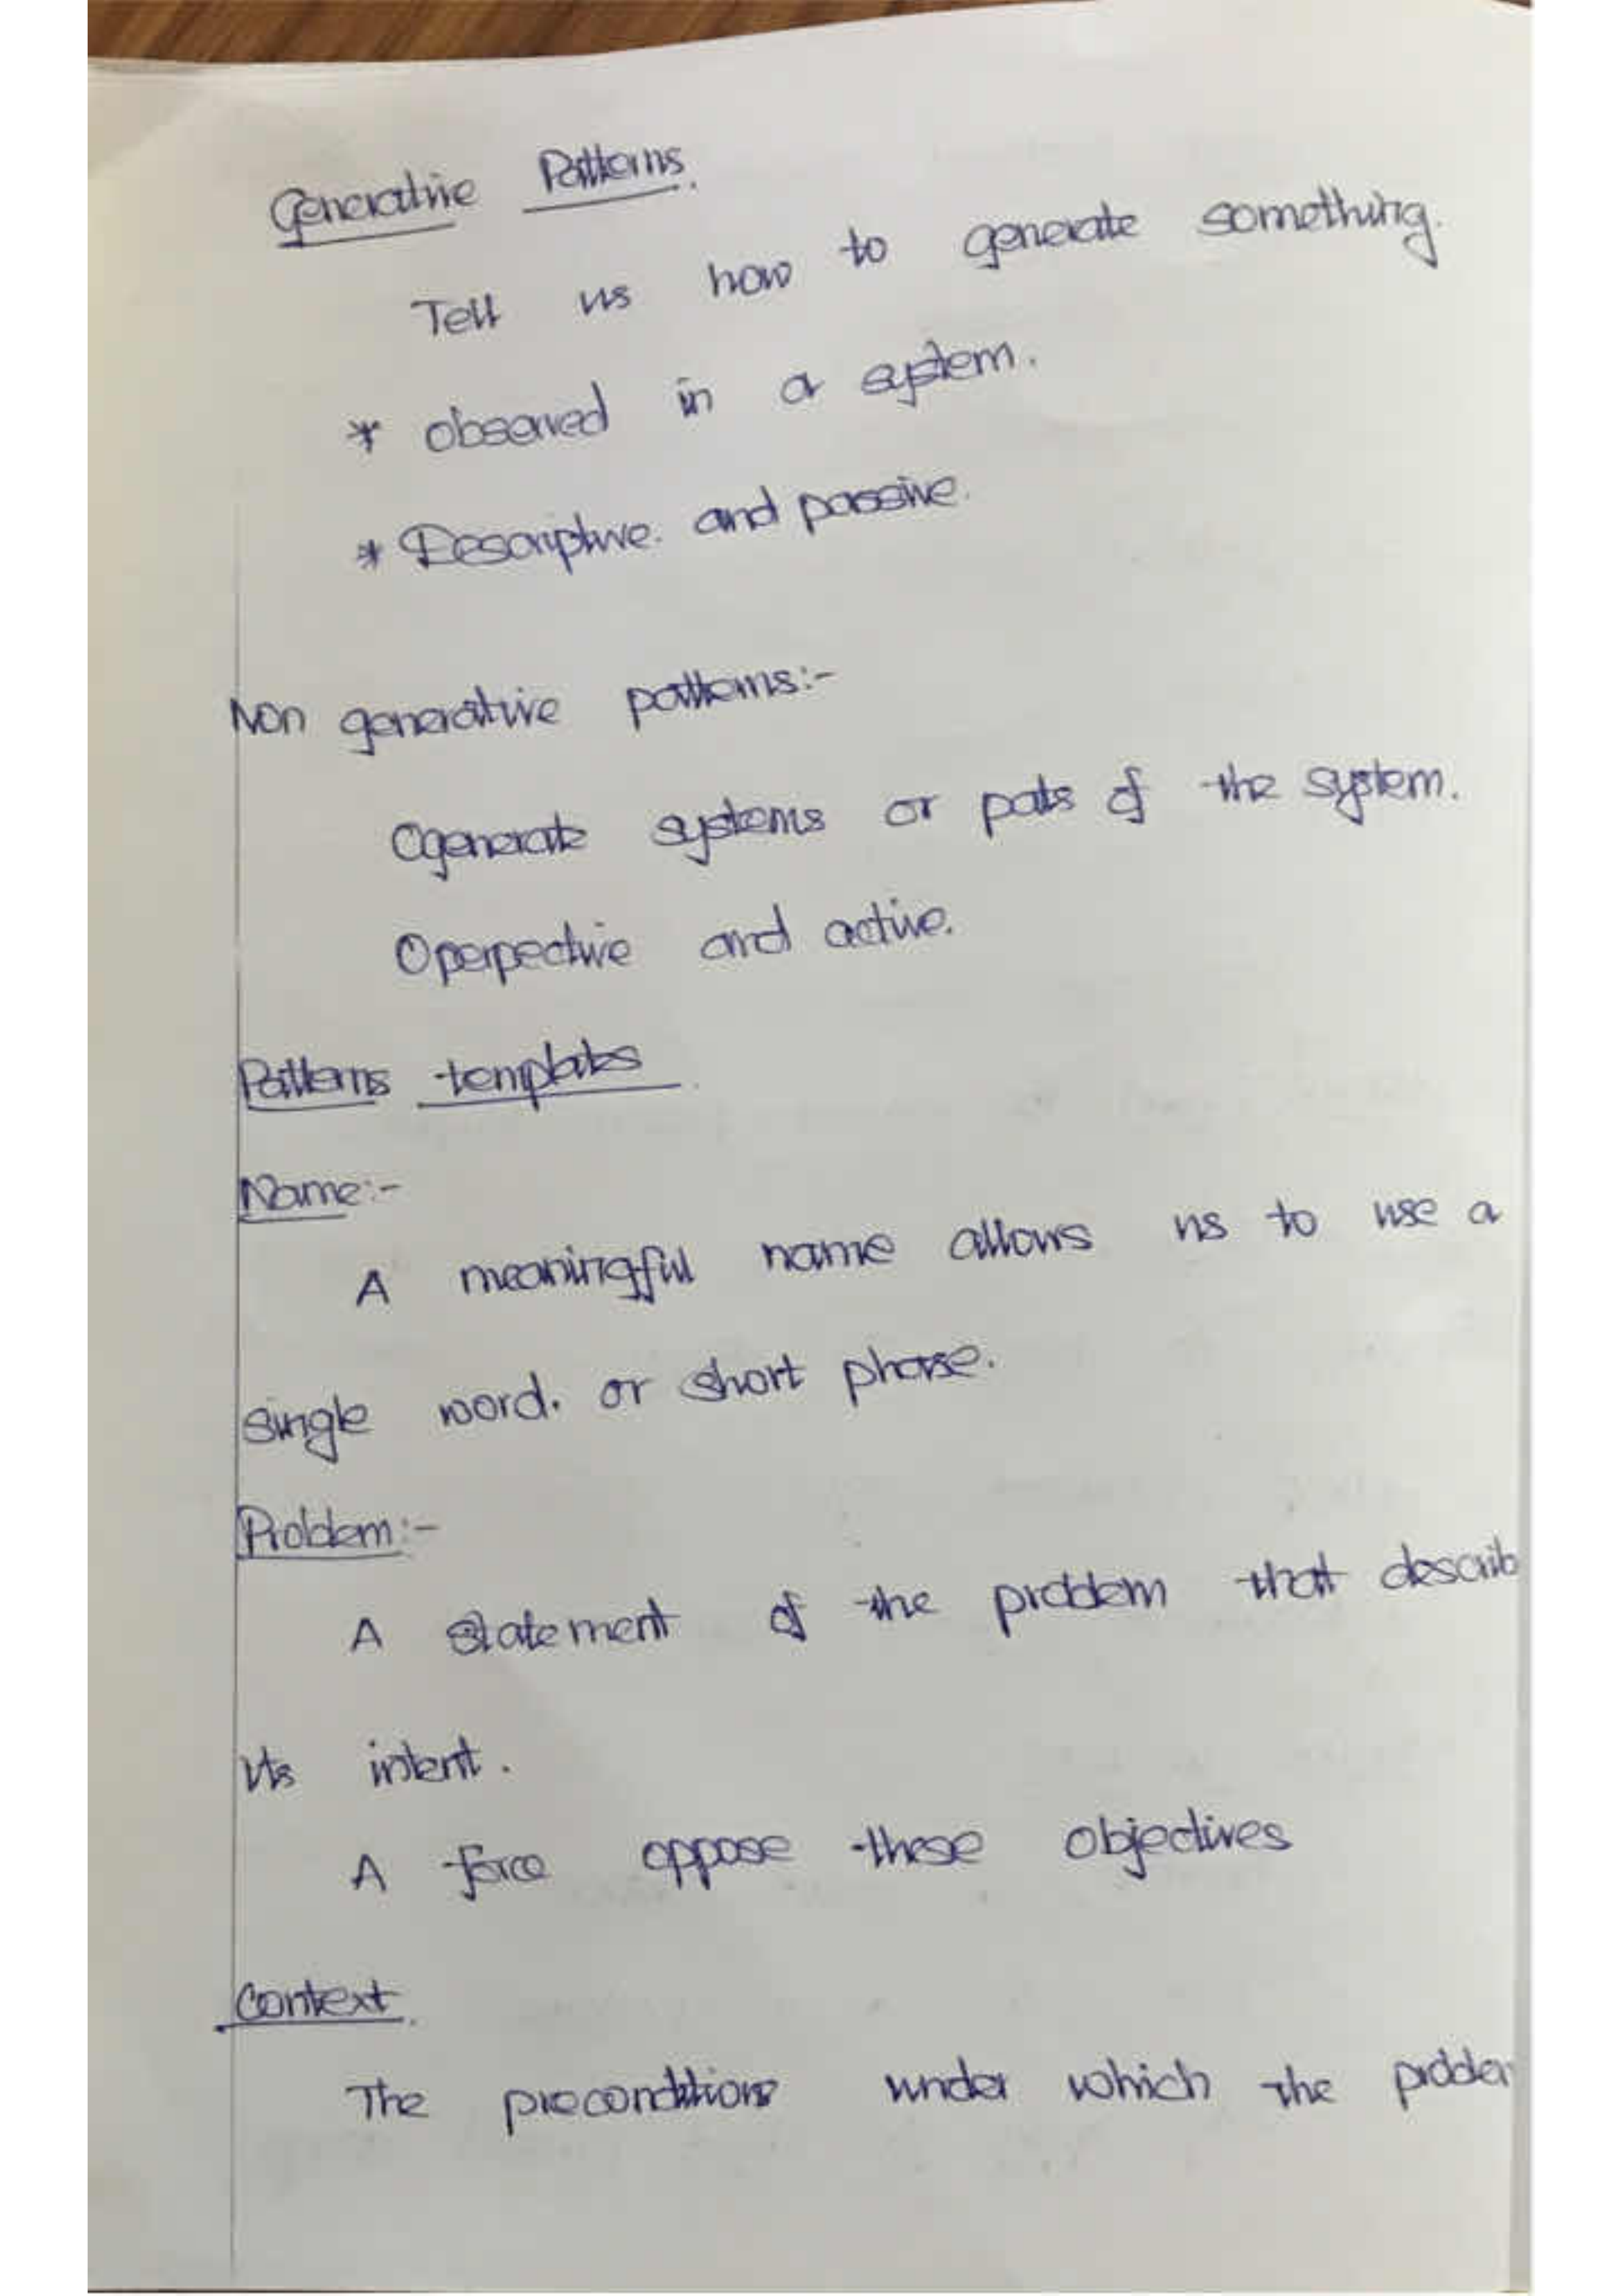 Generative Patterns.
Tell us how to generate something.
* observed in a system.
* Descriptive. and passive.
Non generative patterns:-
O generate systems or pats of the system.
O perpective and active.
Patterns templates
Name:-
A meaningful name allows us to use a
single word. or short pharse.
Problem:-
A statement of the problem that describ
its intent.
A force oppose these objectives
Context.
The preconditions under which the problem